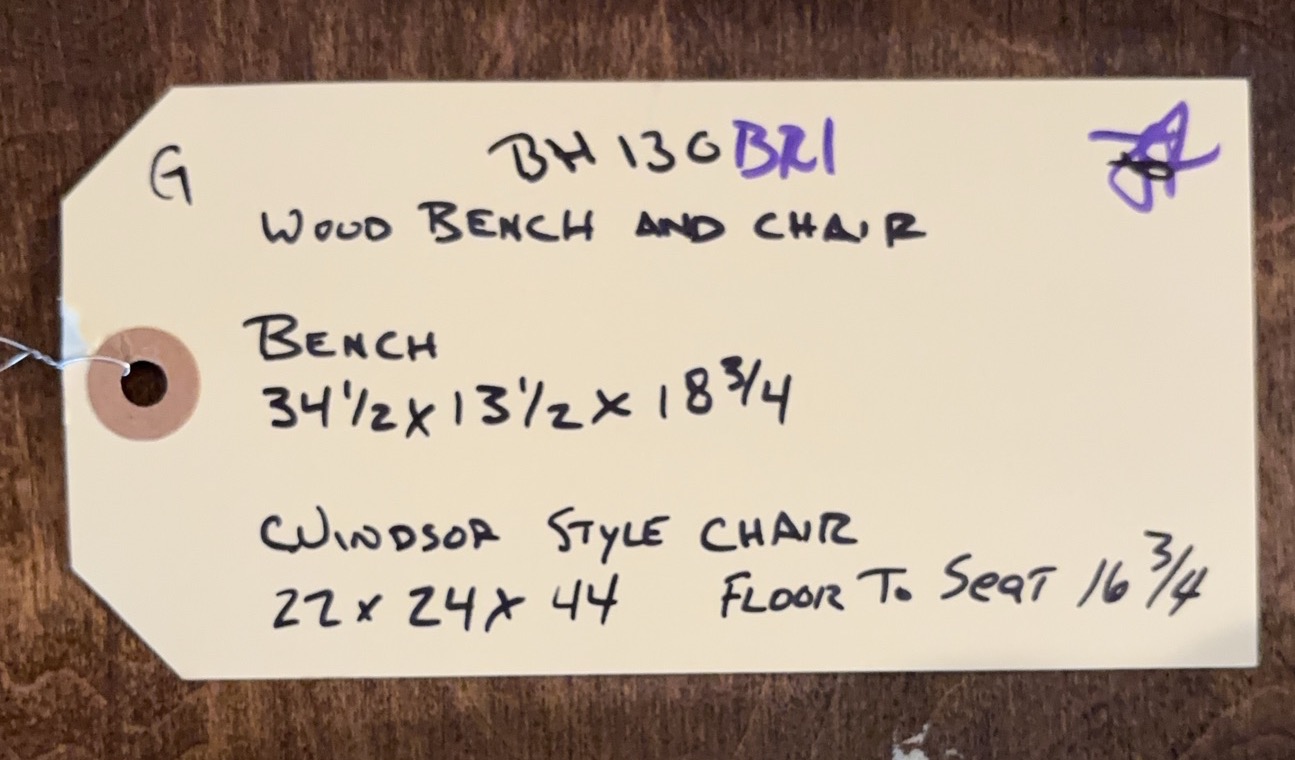 G
BH 130 BR1
WOOD BENCH AND CHAIR
BENCH
34 1/2 x 13 1/2 x 18 3/4
WINDSOR STYLE CHAIR
22 x 24 x 44 FLOOR TO SEAT 16 3/4